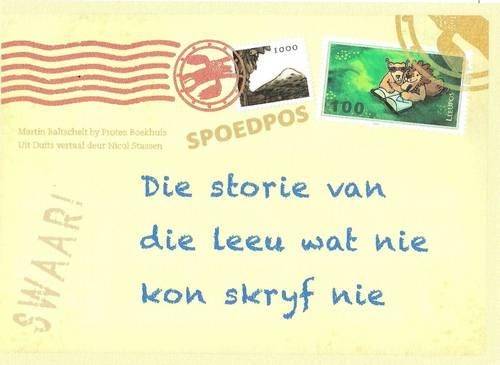 1000
100
LEEUPOS
SPOEDPOS
Martin Baltscheit by Protea Boekhuis
Uit Duits vertaal deur Nicol Stassen
Die storie van
die leeu wat nie
kon skryf nie
SWAAR!